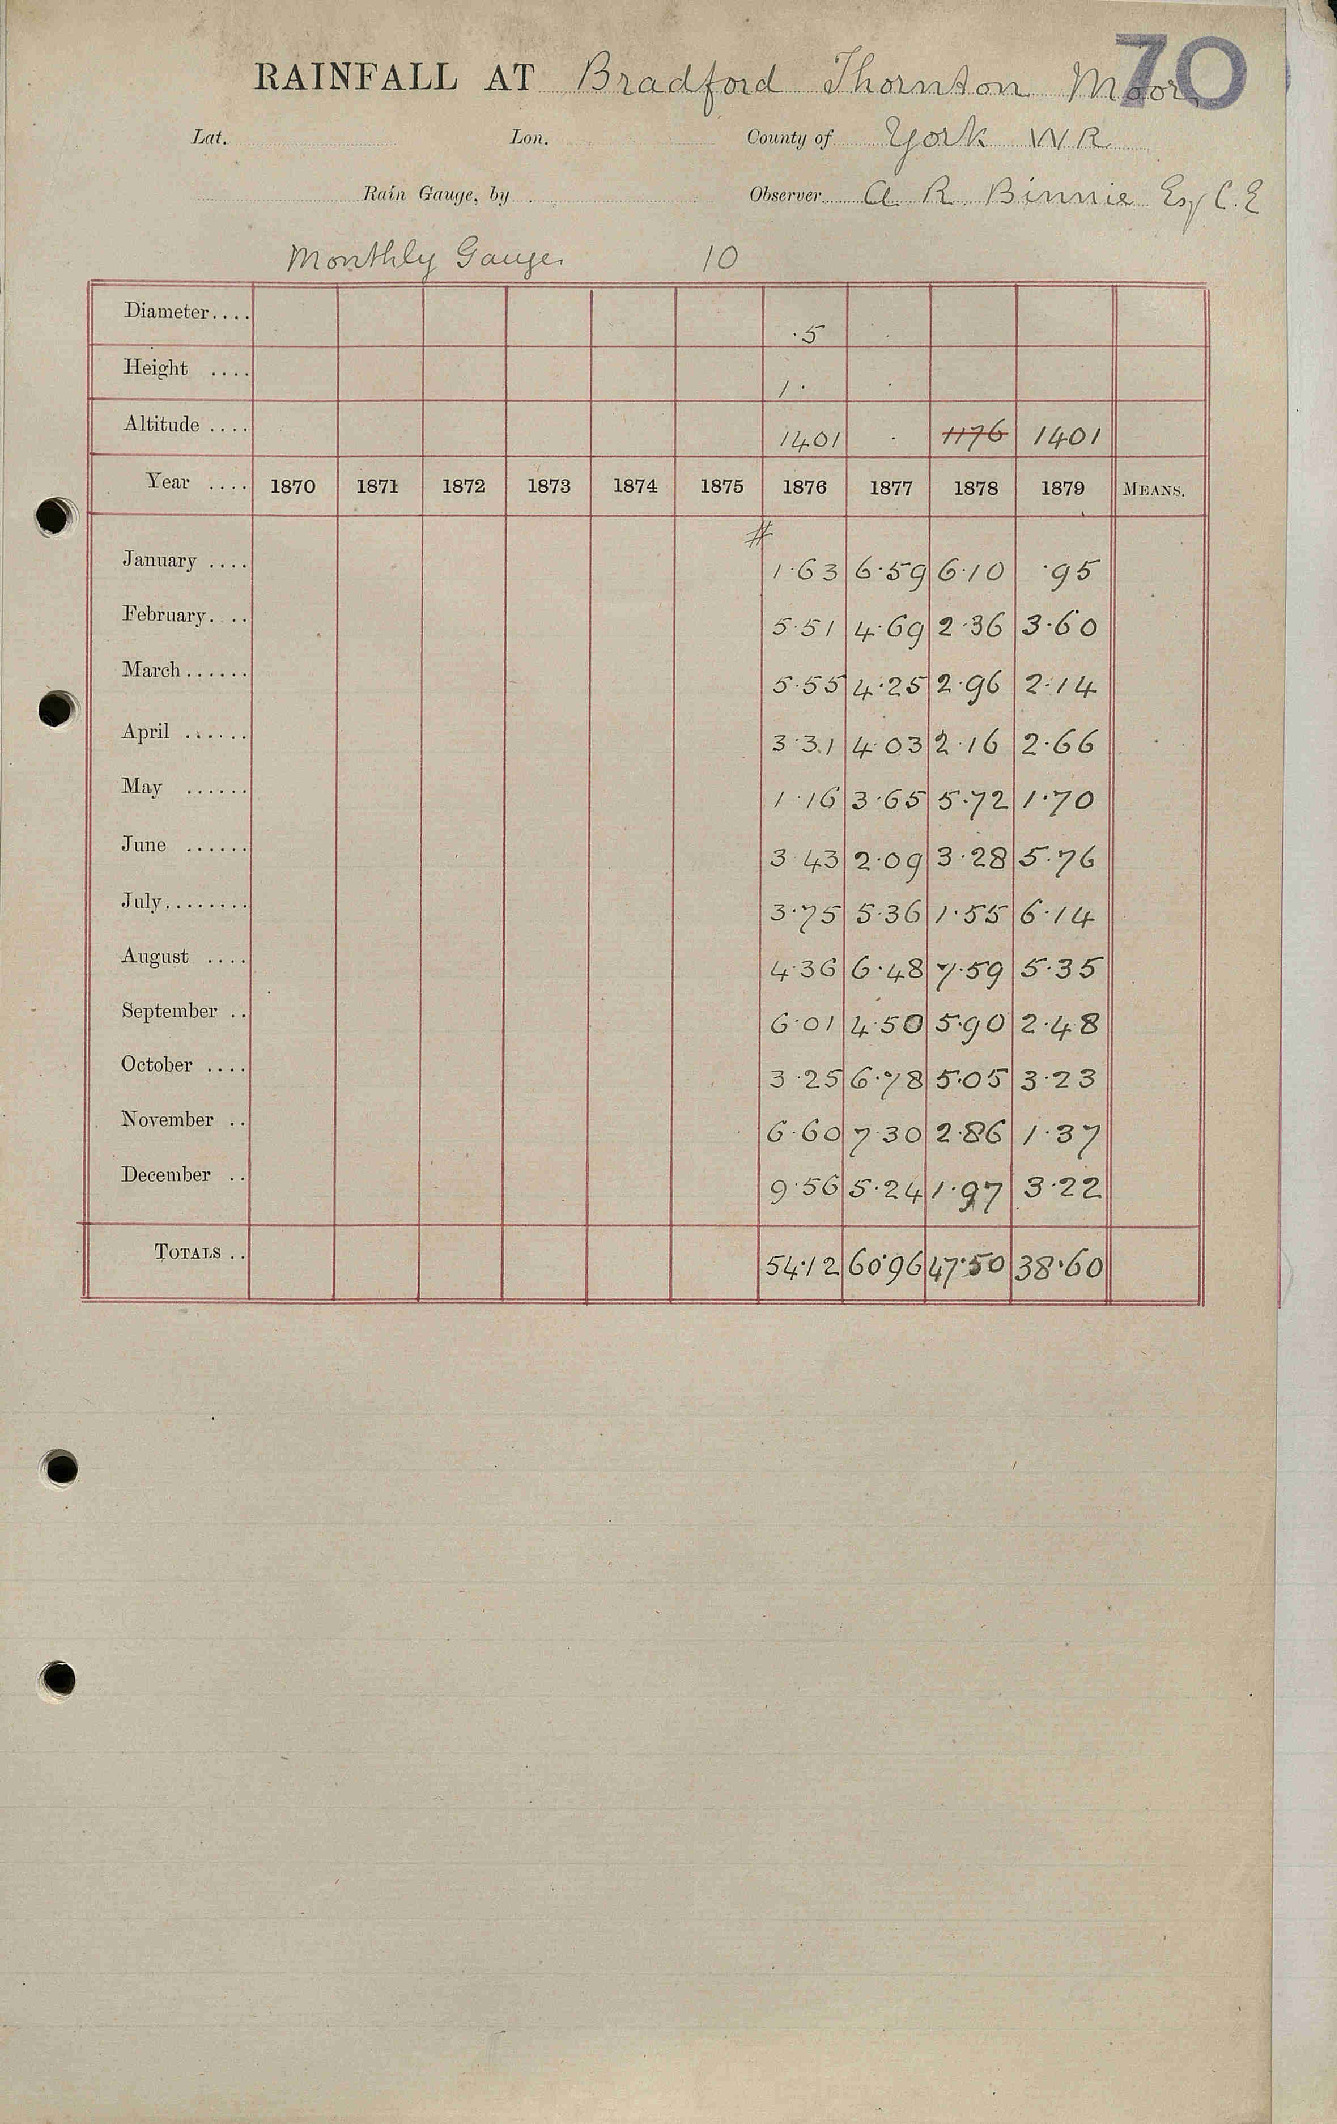 70
RAINFALL AT Bradford Thornton Moor
Lat. Lon. County of York WR
Rain Gauge, by Observer A R Binnie Esq C.E
Monthly Gauge 10
Diameter.... ·5
Height .... 1·
Altitude .... 1401 1176 1401
Year .... 1870 1871 1872 1873 1874 1875 1876 1877 1878 1879 MEANS.
#
January .... 1·63 6·59 6·10 ·95
February. .. 5·51 4·69 2·36 3·60
March...... 5·55 4·25 2·96 2·14
April ...... 3·31 4·03 2·16 2·66
May ...... 1·16 3·65 5·72 1·70
June ...... 3·43 2·09 3·28 5·76
July........ 3·75 5·36 1·55 6·14
August .... 4·36 6·48 7·59 5·35
September .. 6·01 4·50 5·90 2·48
October .... 3·25 6·78 5·05 3·23
November .. 6·60 7·30 2·86 1·37
December .. 9·56 5·24 1·97 3·22
TOTALS .. 54·12 60·96 47·50 38·60